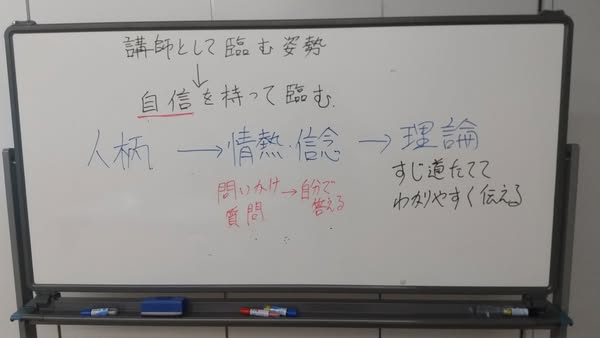 講師として臨む姿勢
↓
自信を持って臨む.
人柄 → 情熱・信念 → 理論
すじ道たてて
わかりやすく伝える
問いかけ → 自分で
質問 答える